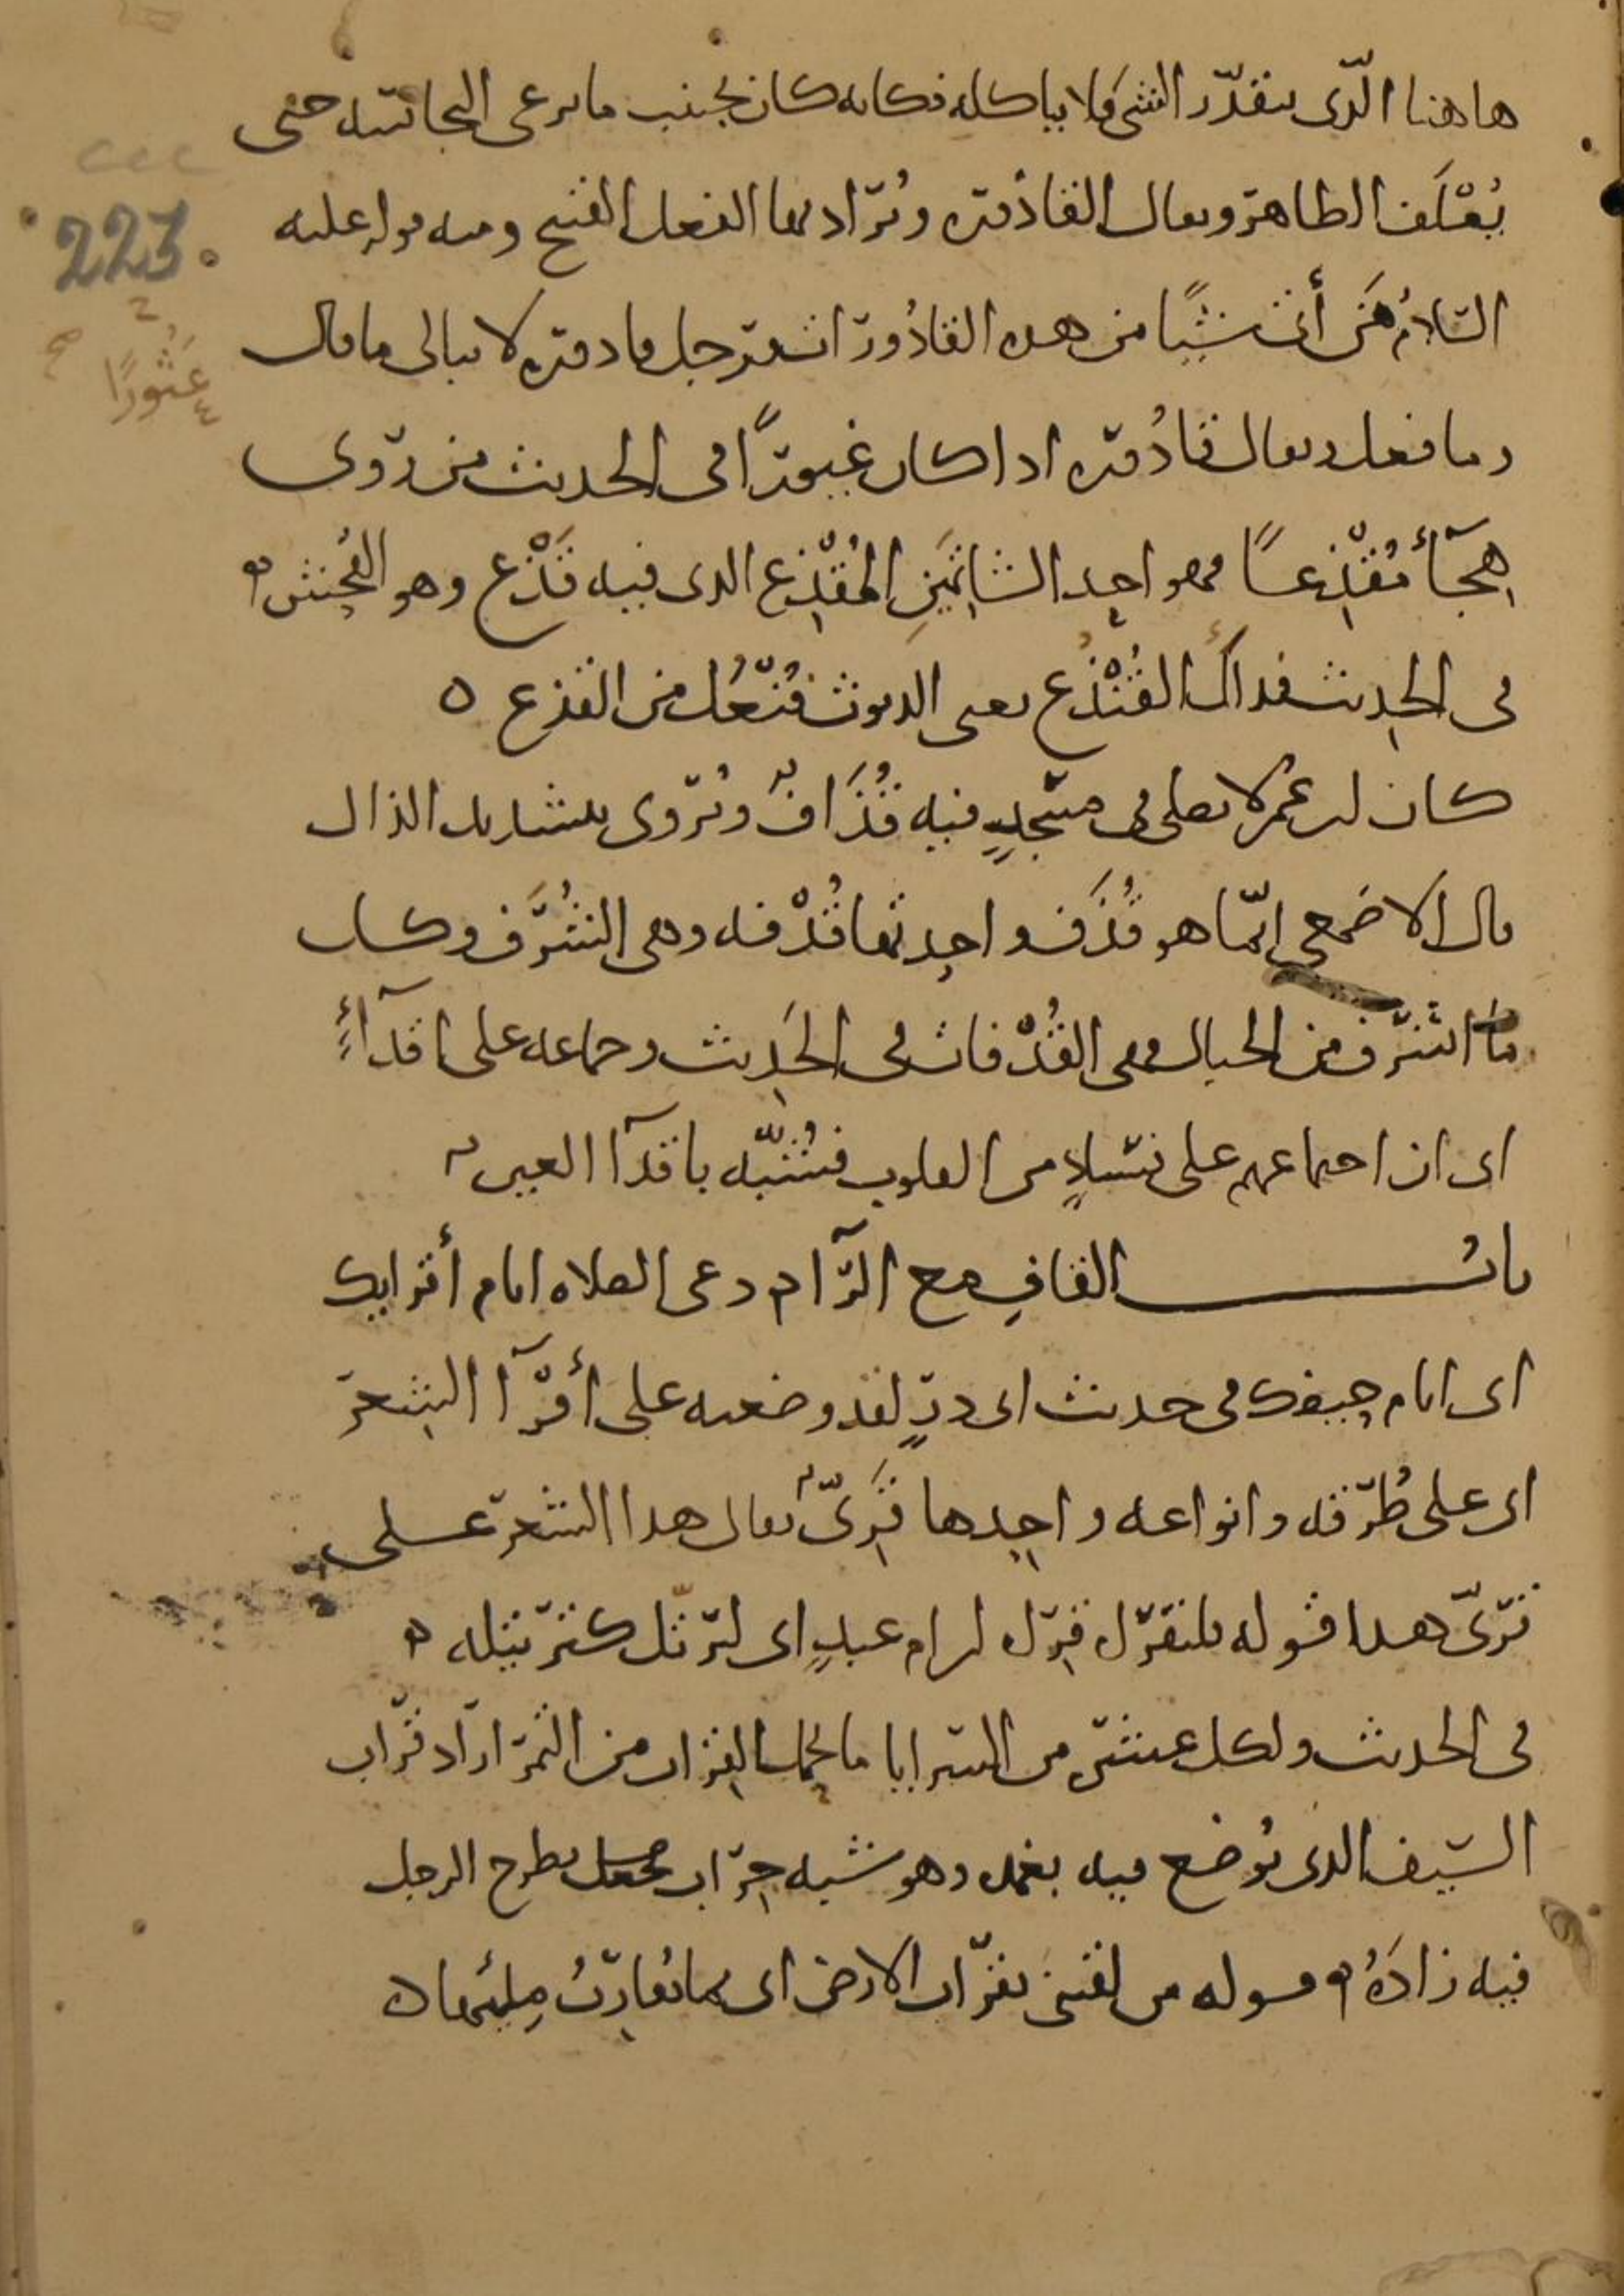 هاهنا الّذى يتقذّر الشى فلا ياكله فكانه كان يجنب ما يرعى النجاسه حتى
يُعْلَف الطاهر ويقال القاذوره ويُراد بها الفعل القبيح ومنه قوله عليه
السلامُ مَن أتى شيًا من هذه القاذُورات رجل قاذوره لا يبالى ما قال
وما فعل ويقال قاذُوره اذا كان غيورًا فى الحديث من رَوى
هِجَآءً مُقْذِعًا فهو احد الشاتمَينِ المُقْذِع الذى فيه قَذْع وهو الفُحش
فى الحديث فذاك القُنْذُع يعنى الديوث فُنْعُل من القذع ه
كان ابن عمر لا يصلى فى مسجدٍ فيه قُذَافٌ ويُروى بتشديد الذال
قال الاصمعى انّما هو قُذَف واحدتها قُذْفه وهى الشُرَف وكل
ما اشرف من الجبال فهى القُذْفات فى الحَديث وجماعه على اقذآءٍ
اى ان اجتماعهم على فسادٍ من القلوب فشُبّه باقذآ العين
بابُ القاف مع الرّآ دعى الصلاه ايام أقرايك
اى ايام حيضك فى حديث ابى ذرٍ لقد وضعته على أقْرآ الشعر
اى على طُرقه وانواعه واحدها قَرِىٌّ يقال هذا الشعر على
قرىّ هذا قوله
فى الحديث ولكل عشره من السرايا ما يحمل القراب من التمر اراد قراب
السيف الذى يُوضع فيه بغمده وهو شبه جِراب يطرح الرجل
فيه زادَهُ قوله من لقينى بقراب الارض اى بما يُقاربُ مِلئها ه
223
عَثُورًا